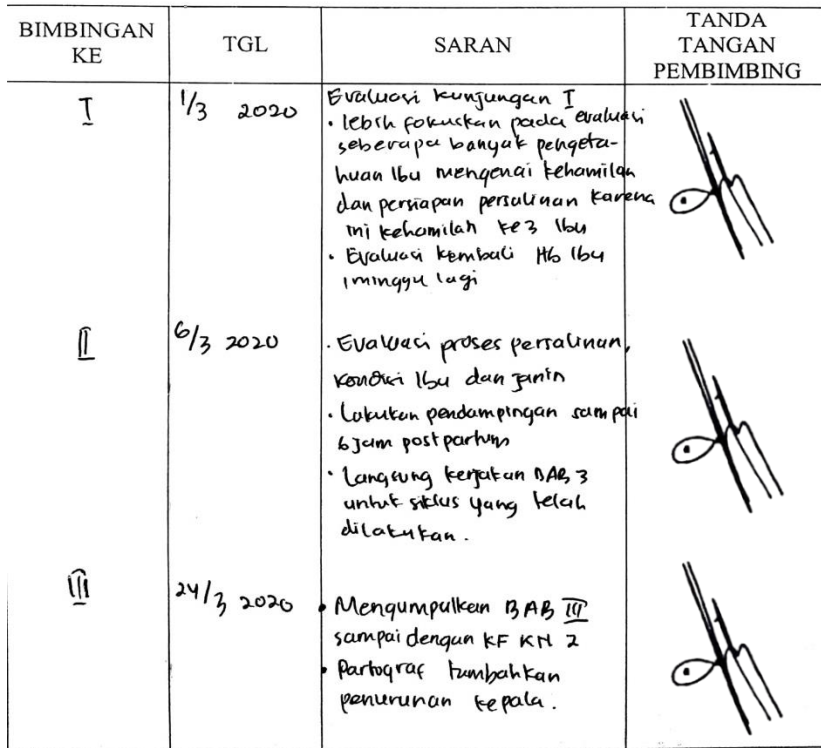 BIMBINGAN KE
TGL
SARAN
TANDA TANGAN PEMBIMBING
I
1/3 2020
Evaluasi kunjungan I
• lebih fokuskan pada evaluasi
seberapa banyak pengeta-
huan Ibu mengenai kehamilan
dan persiapan persalinan karena
ini kehamilan ke 3 Ibu
• Evaluasi kembali Hb Ibu
1 minggu lagi
II
6/3 2020
• Evaluasi proses persalinan,
kondisi Ibu dan janin
• Lakukan pendampingan sampai
6 jam postpartum
• Langsung kerjakan BAB 3
untuk siklus yang telah
dilakukan.
III
24/3 2020
• Mengumpulkan BAB III
sampai dengan KF KN 2
• Partograf tambahkan
penurunan kepala.